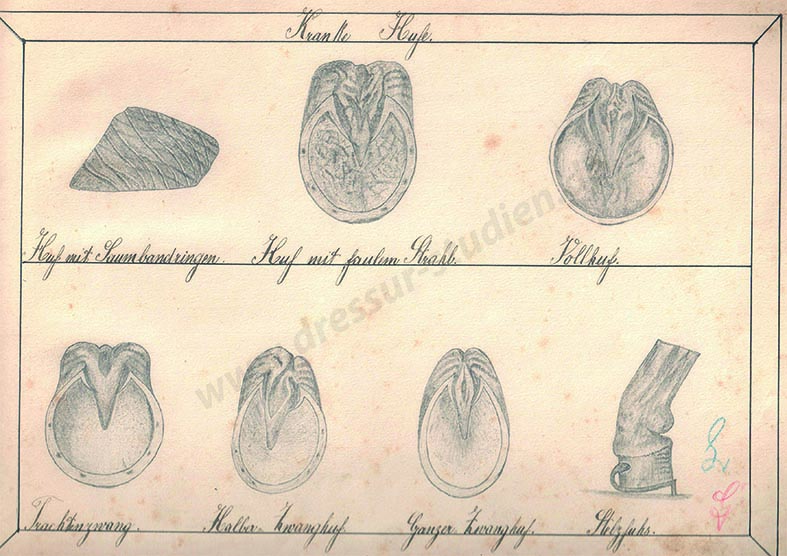 Kranke Hufe.
Huf mit Saumbandringen. Huf mit faulem Strahl. Vollhuf.
www.dressur-studien.
Trachtenzwang. Halber-Zwanghuf. Ganzer-Zwanghuf. Stelzfuß.